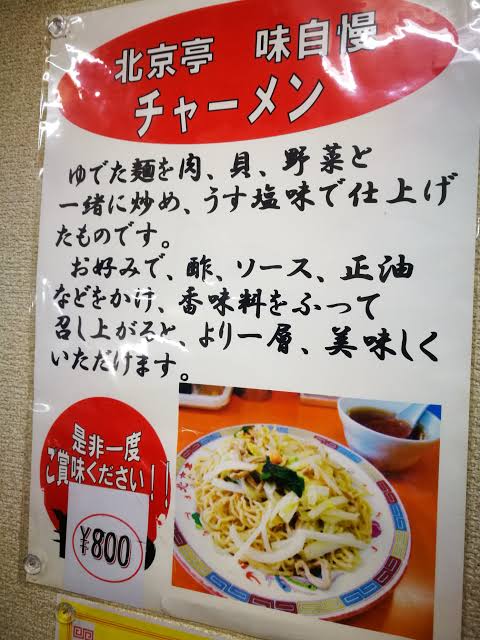 北京亭 味自慢
チャーメン
ゆでた麺を肉、貝、野菜と
一緒に炒め、うす塩味で仕上げ
たものです。
お好みで、酢、ソース、正油
などをかけ、香味料をふって
召し上がると、より一層、美味しく
いただけます。
是非一度
ご賞味ください!!
¥800